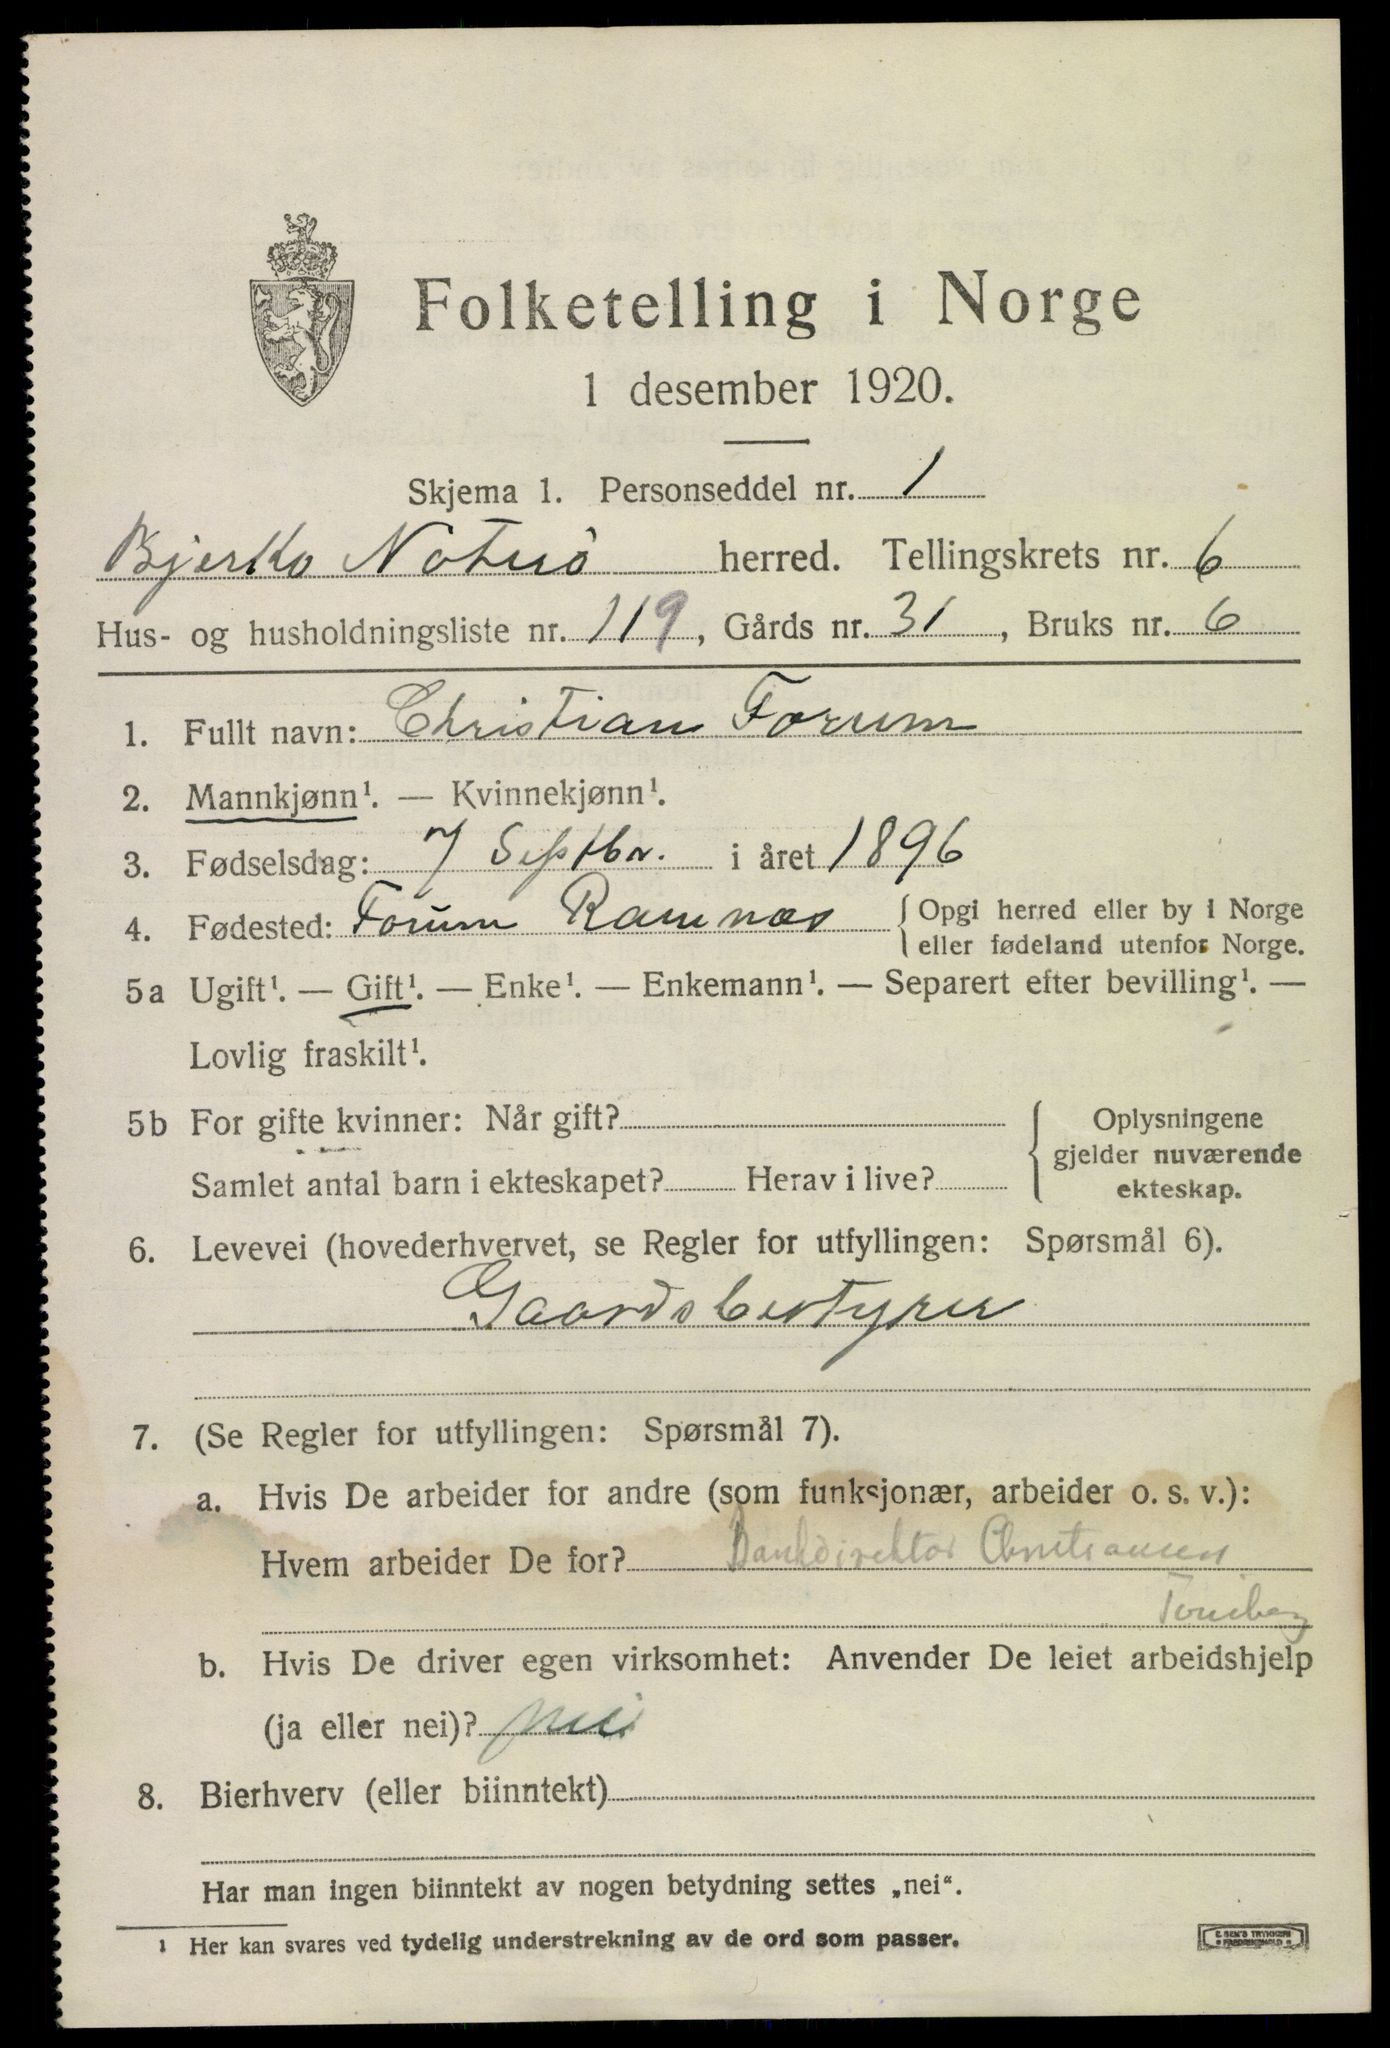 Folketelling i Norge
1 desember 1920.
Skjema 1. Personseddel nr. 1
Bjerko Notterö herred. Tellingskrets nr. 6
Hus- og husholdningsliste nr. 119, Gårds nr. 31, Bruks nr. 6
1. Fullt navn: Christian Forum
2. Mannkjønn¹. — Kvinnekjønn¹.
3. Fødselsdag: 7 Septbr. i året 1896
4. Fødested: Forum Ramnæs { Opgi herred eller by i Norge
eller fødeland utenfor Norge.
5a Ugift¹. — Gift¹. — Enke¹. — Enkemann¹. — Separert efter bevilling¹. —
Lovlig fraskilt¹.
5b For gifte kvinner: Når gift?
Samlet antal barn i ekteskapet? Herav i live?
Oplysningene
gjelder nuværende
ekteskap.
6. Levevei (hovederhvervet, se Regler for utfyllingen: Spørsmål 6).
Gaardsbestyrer
7. (Se Regler for utfyllingen: Spørsmål 7).
a. Hvis De arbeider for andre (som funksjonær, arbeider o. s. v.):
Hvem arbeider De for? Bankdirektor Christiansen
Tønsberg
b. Hvis De driver egen virksomhet: Anvender De leiet arbeidshjelp
(ja eller nei)? nei
8. Bierhverv (eller biinntekt)
Har man ingen biinntekt av nogen betydning settes „nei“.
¹ Her kan svares ved tydelig understrekning av de ord som passer.